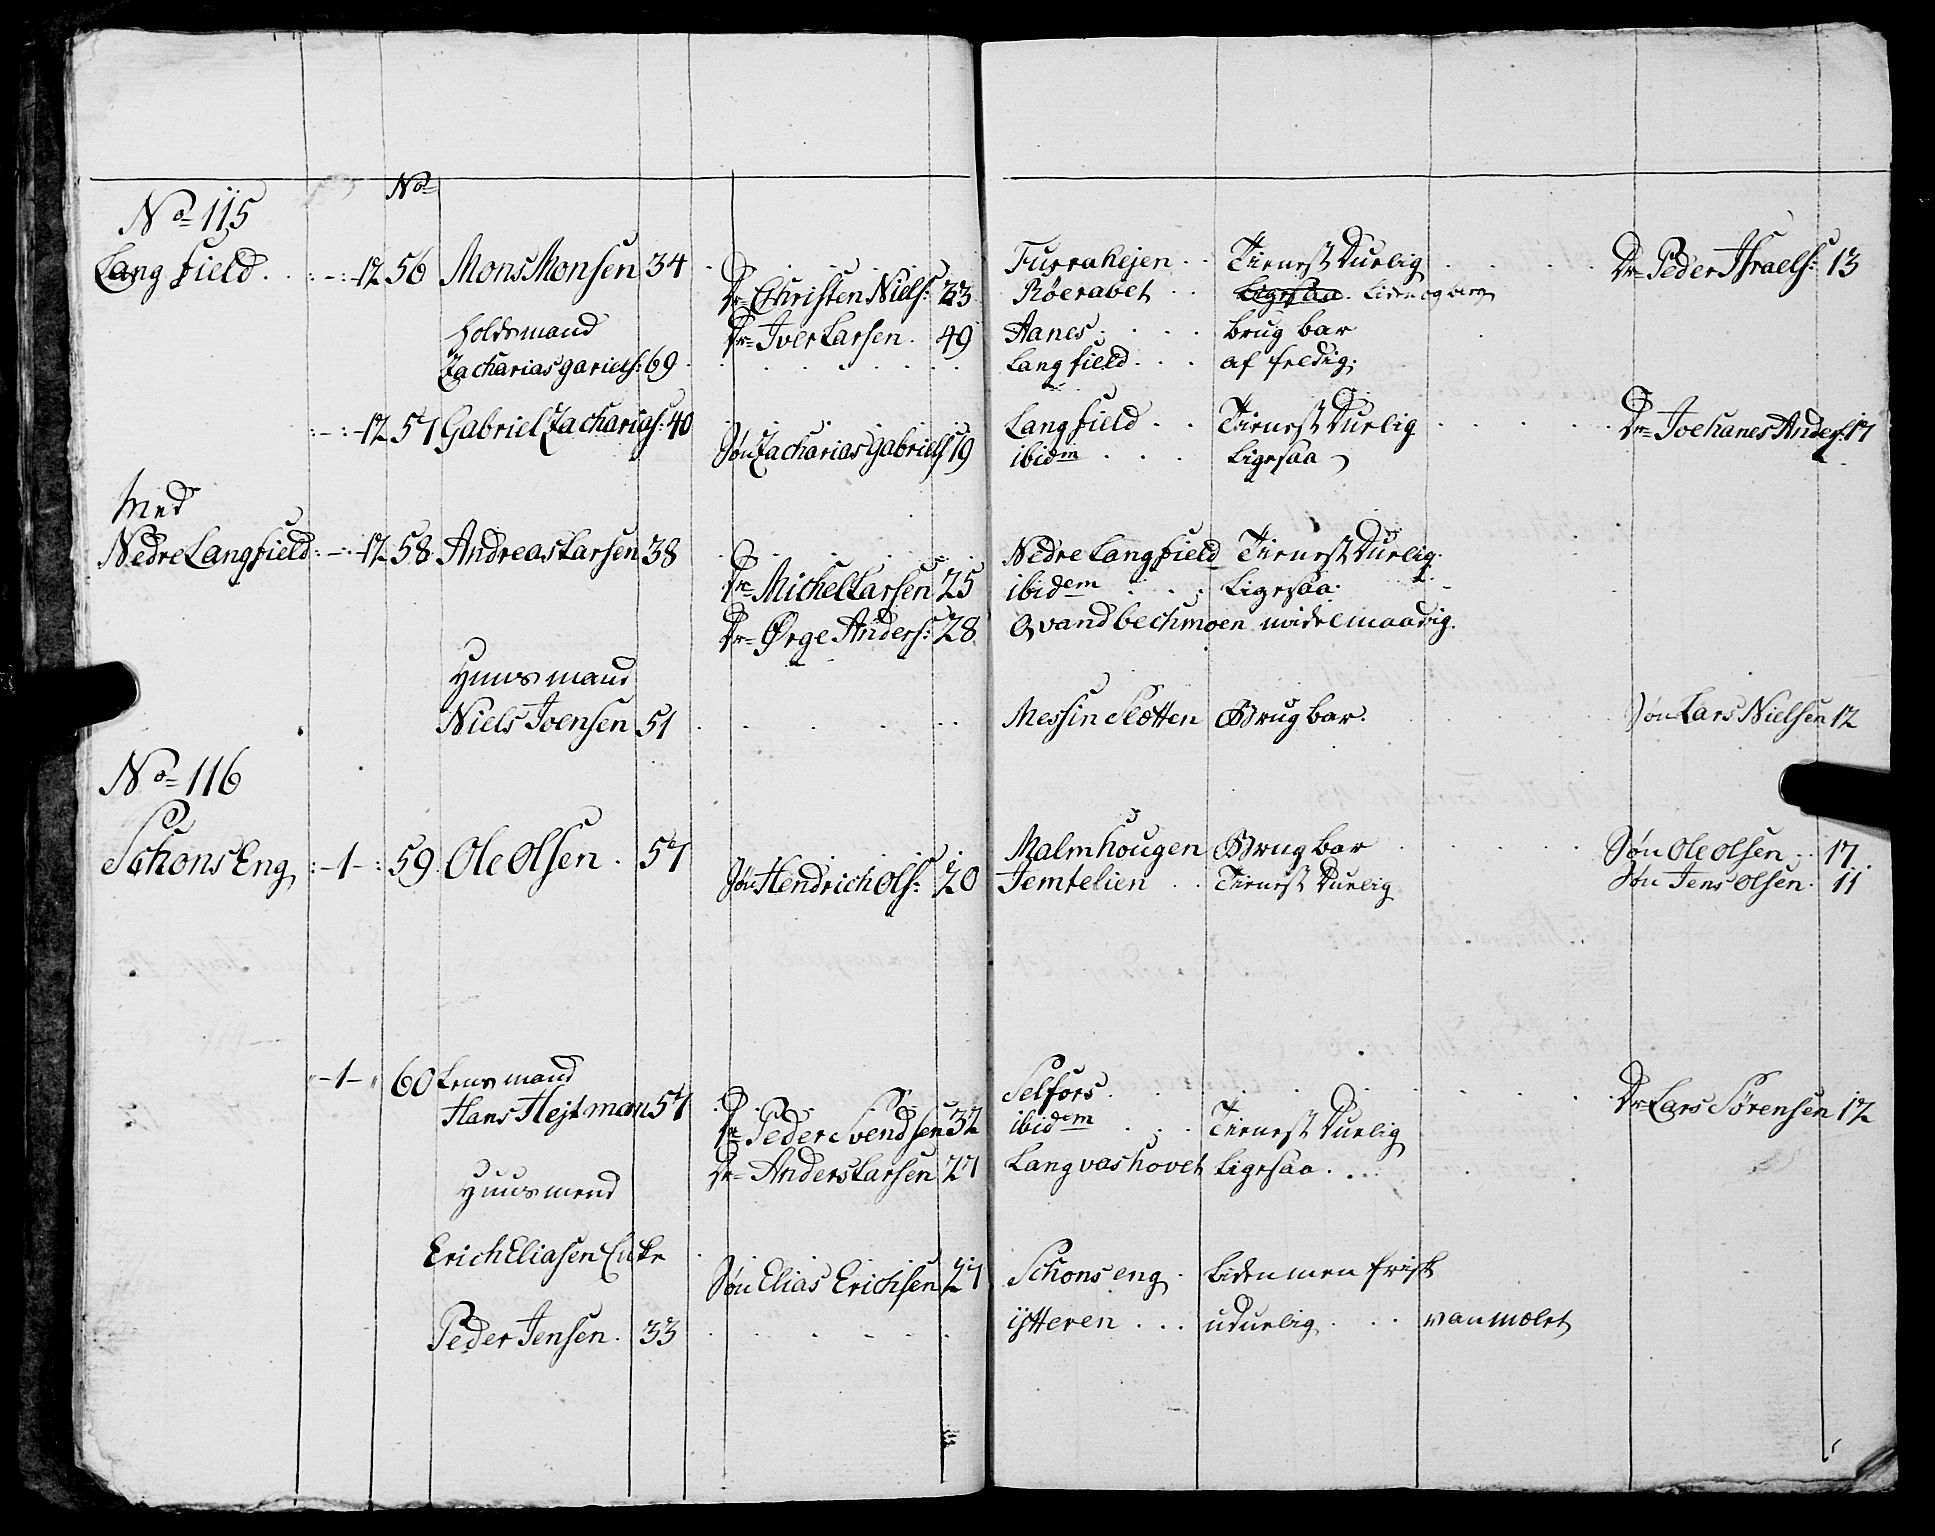 No 115 No
Lang field . . :-:-12 56 Mons Monsen 34 Furrahejen . . Tienest Duelig Dr Peder Israels: 13
Dr Christen Niels: 33 Röerabet . . Ligesaa . Liden og berg
Holdsmand Dr Iver Larsen . 49 Aanes . . . . brug bar
Zacharias gariels: 69 Lang field . . . af feldig;
:-:-12 57 Gabriel Zacharias: 40 Lang field . . Tienest Duelig Dr Joehanes Anders: 17
Søn Zacharias Gabriels 19 ibidm . . . Ligesaa
Med
Nedre Lang field :-:-12 58 Andreas Larsen 38 Nedre Lang field Tienest Duelig.
Dr Michel Larsen 25 ibidem . . . Ligesaa.
Dr Ørge Anders: 28 Qvandbechmoen midelmaadig.
Huusmand
Niels Joensen 51 Messin Slotten Brug bar. Søn Lars Nielsen 12
No 116
Schons Eng :-1-: 59. Ole Olsen . 57 Malmhougen Brug bar Søn Ole Olsen . 17.
Søn Hendrich Ols: 20 Jemtelien . . Tienest Duelig Søn Jens Olsen . 11
-1- 60 Lens mand Selfors.
Hans Hejtman 57 Dr Peder Svendsen 32 ibidem . . . Tienest Duelig Dr Lars Sörensen 12
Dr Anders Larsen 27 Langvashovet Ligesaa . . .
Huusmend
Erich Eliasen
Søn Elias Erichsen 27 Schons eng . Liden men frisk
Peder Jensen . 33 ijtteren . . . uduelig . . . vanmelet